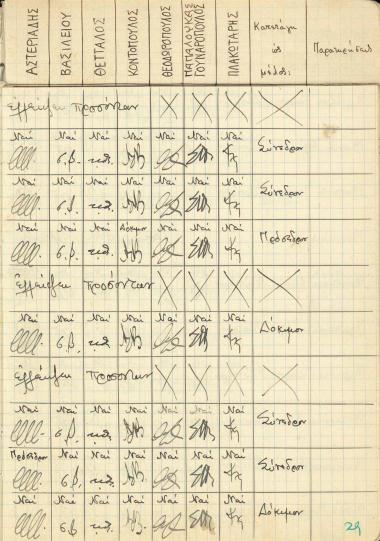 ΑΣΤΕΡΙΑΔΗΣ ΒΑΣΙΛΕΙΟΥ ΘΕΤΤΑΛΟΣ ΚΟΝΤΟΠΟΥΛΟΣ ΘΕΟΔΩΡΟΠΟΥΛΟΣ ΠΑΠΑΛΟΥΚΑΣ ΓΟΥΝΑΡΟΠΟΥΛΟΣ ΠΛΑΚΩΤΑΡΗΣ Κατετάγη ὡς μέλος: Παρατηρήσεις
Ἐλλείψει προσόντων
Ναί Ναί Ναί Ναί Ναί Ναί Ναί Σύνεδρον
σ.β.
Ναί Ναί Ναί Ναί Ναί Ναί Ναί Σύνεδρον
σ.β.
Ναί Ναί Ναί Δόκιμον Ναί Ναί Ναί Πρόσεδρον
σ.β.
Ἐλλείψει προσόντων
Ναί Ναί Ναί Ναί Ναί Ναί Ναί Δόκιμον
σ.β.
Ἐλλείψει προσόντων
Ναί Ναί Ναί Ναί Ναί Ναί Ναί Σύνεδρον
σ.β.
Πρόσεδρον Ναί Ναί Ναί Ναί Ναί Ναί Σύνεδρον
σ.β.
Ναί Ναί Ναί Ναί Ναί Ναί Ναί Δόκιμον
σ.β.
29